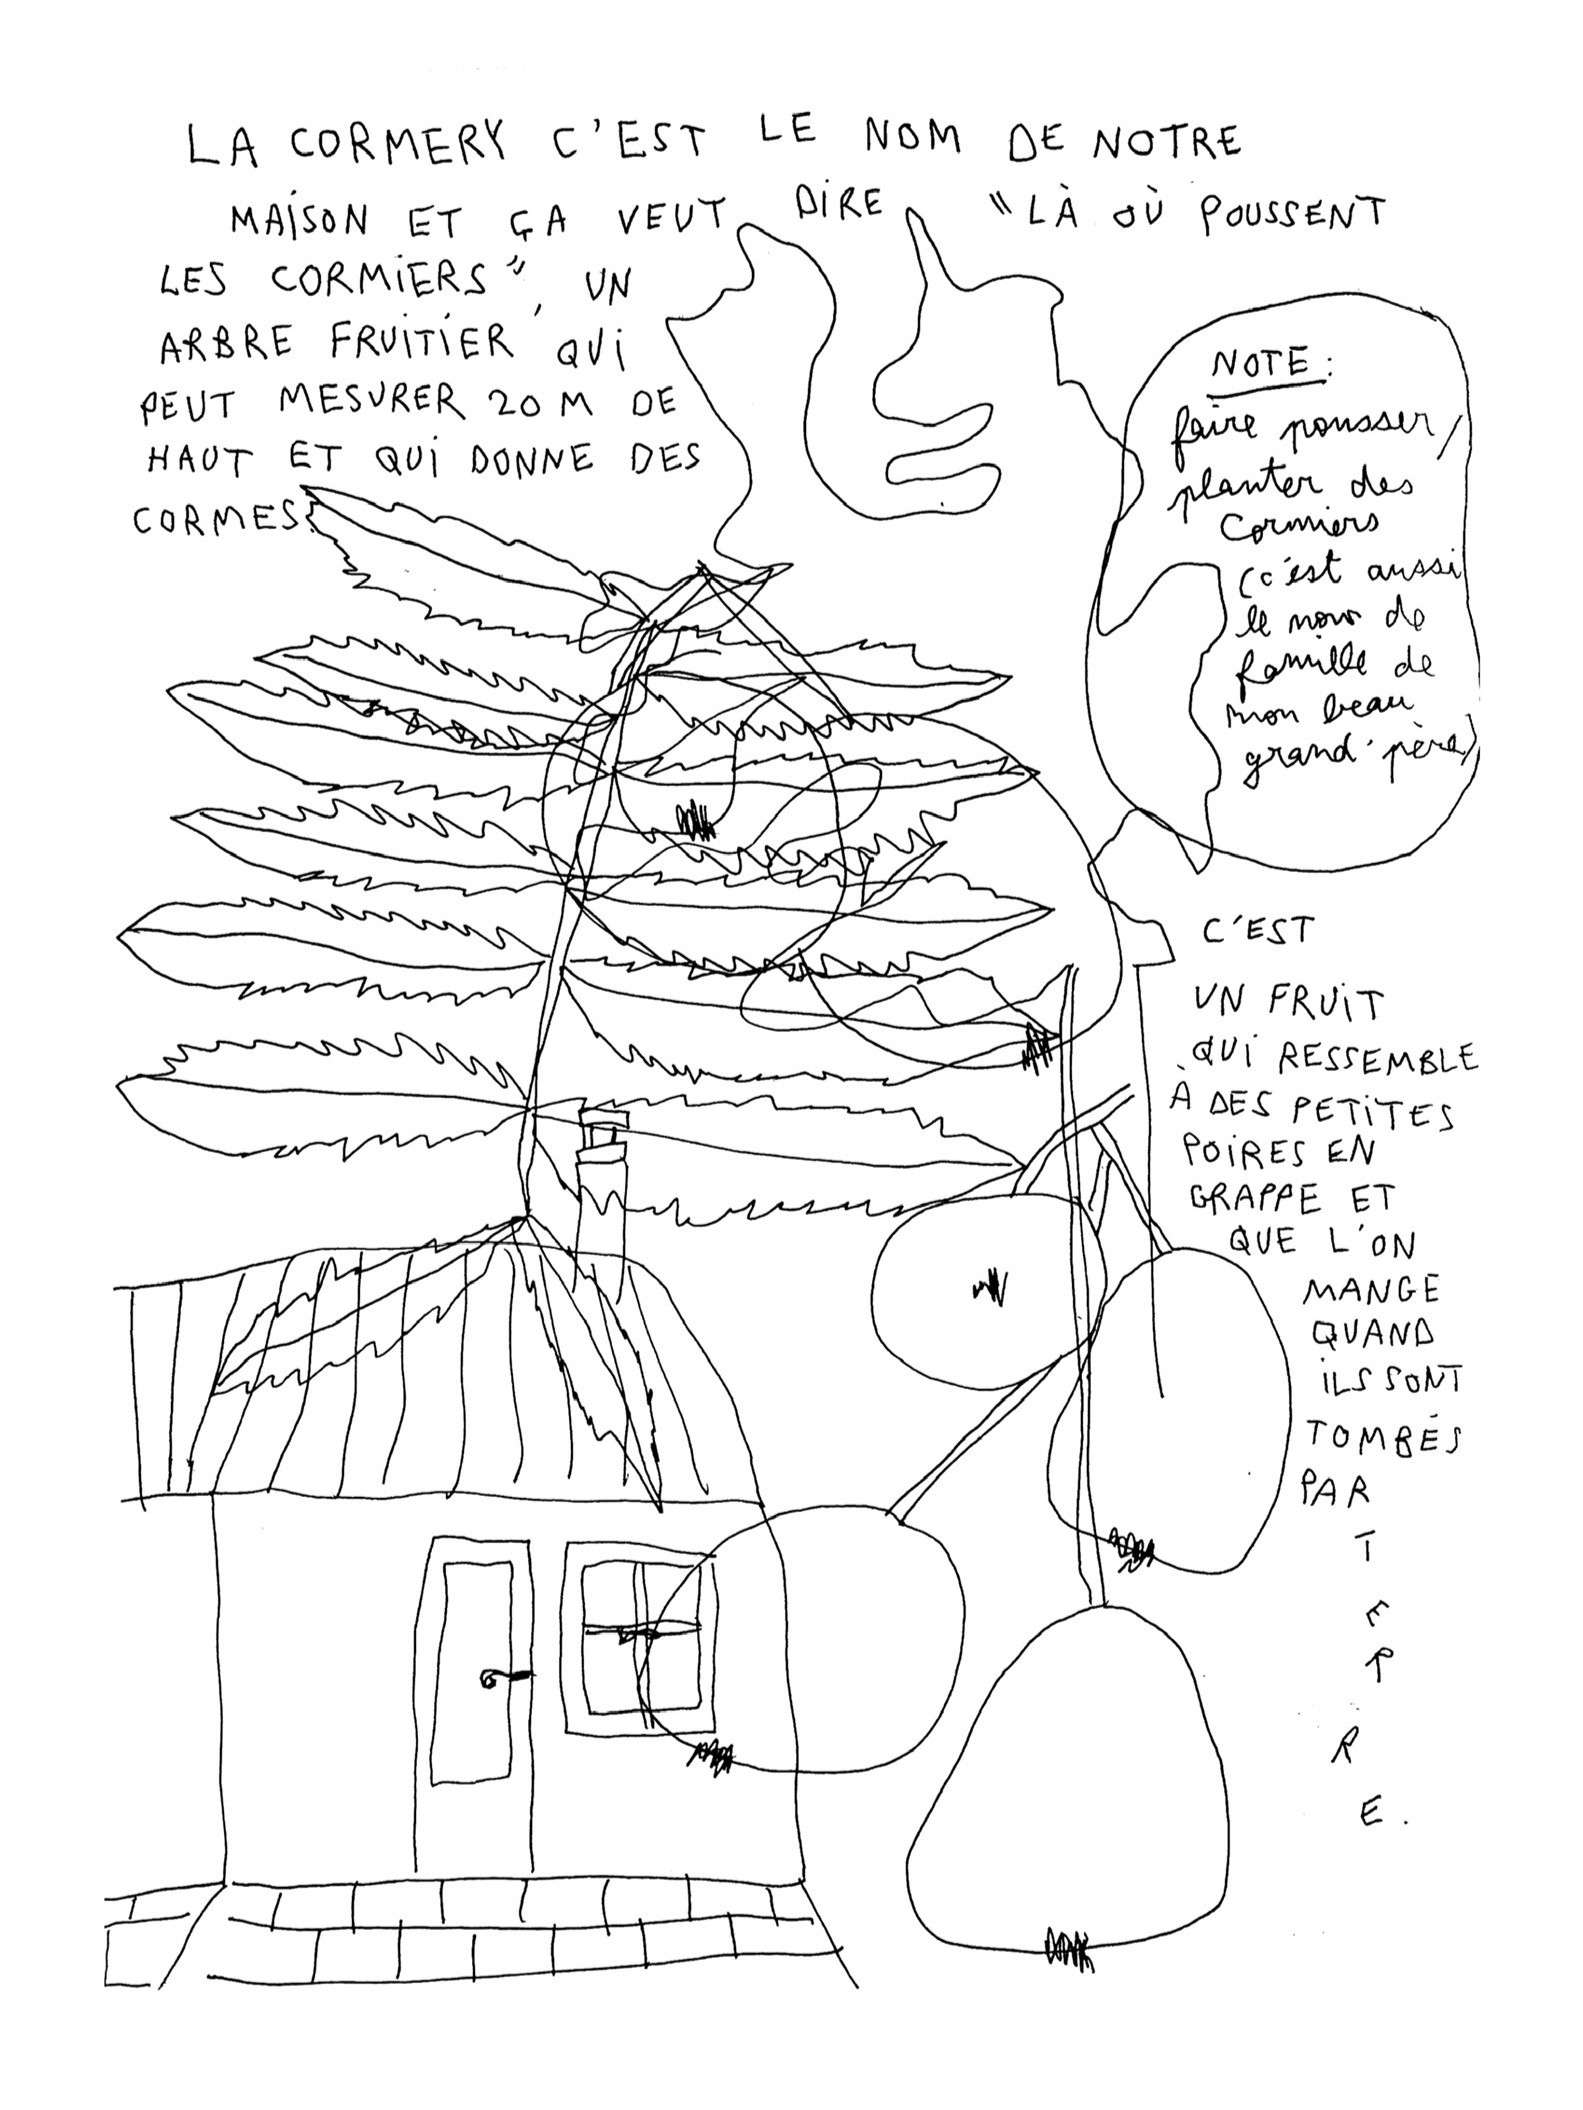 LA CORMERY C'EST LE NOM DE NOTRE
MAISON ET ÇA VEUT DIRE "LÀ OÙ POUSSENT
LES CORMIERS", UN
ARBRE FRUITIER QUI
PEUT MESURER 20 M DE
HAUT ET QUI DONNE DES
CORMES.
NOTE :
faire pousser/
planter des
Cormiers
(c'est aussi
le nom de
famille de
mon beau
grand-père)
C'EST
UN FRUIT
QUI RESSEMBLE
À DES PETITES
POIRES EN
GRAPPE ET
QUE L'ON
MANGE
QUAND
ILS SONT
TOMBÉS
PAR
T
E
R
R
E.